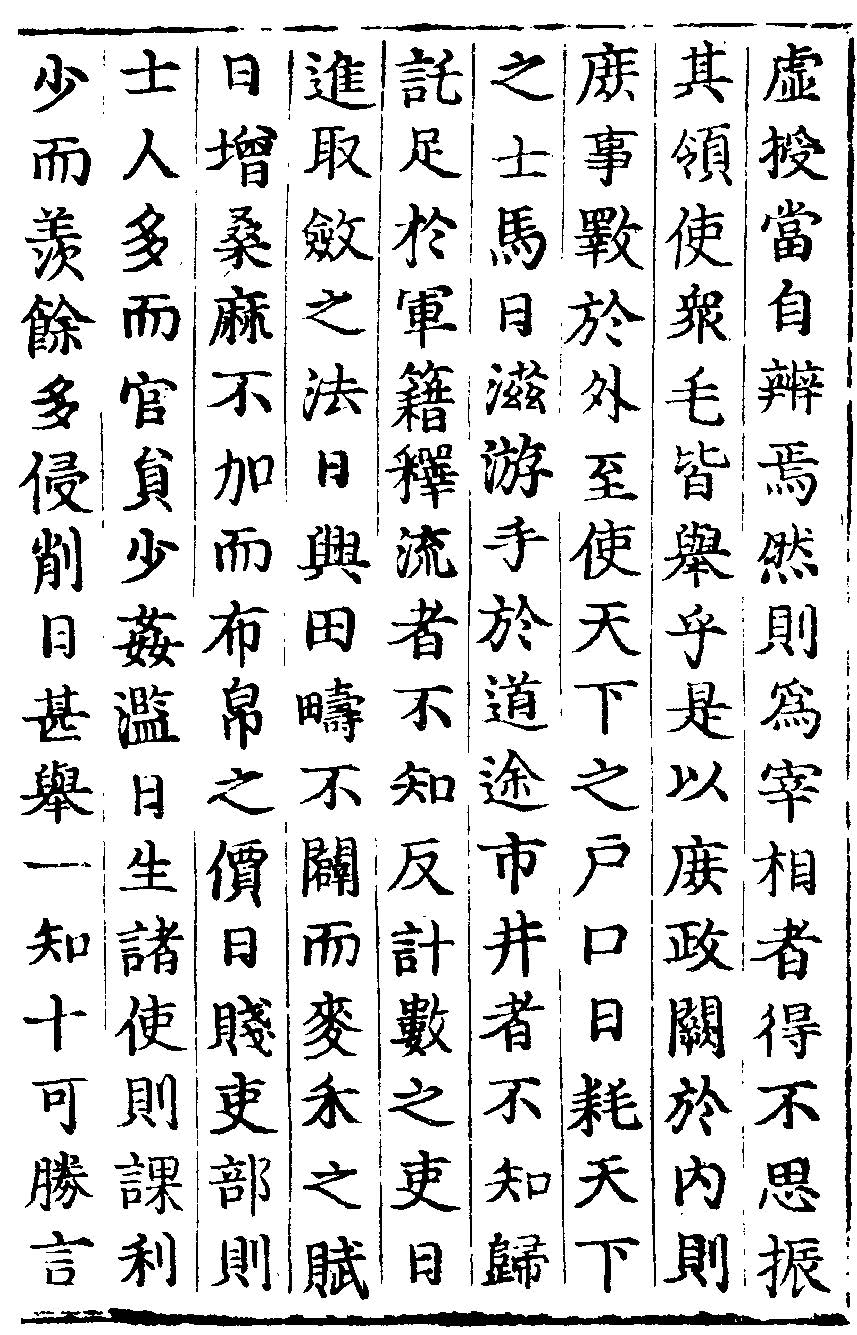 虛授當自辨焉然則爲宰相者得不思振
其領使衆毛皆舉乎是以庻政闕於内則
庻事斁於外至使天下之戸口日耗天下
之士馬日滋游手於道途市井者不知歸
託足於軍籍釋流者不知反計數之吏日
進取斂之法日興田疇不闢而麥禾之賦
日增桑麻不加而布帛之價日賤吏部則
士人多而官負少姦濫日生諸使則課利
少而羨餘多侵削日甚舉一知十可勝言